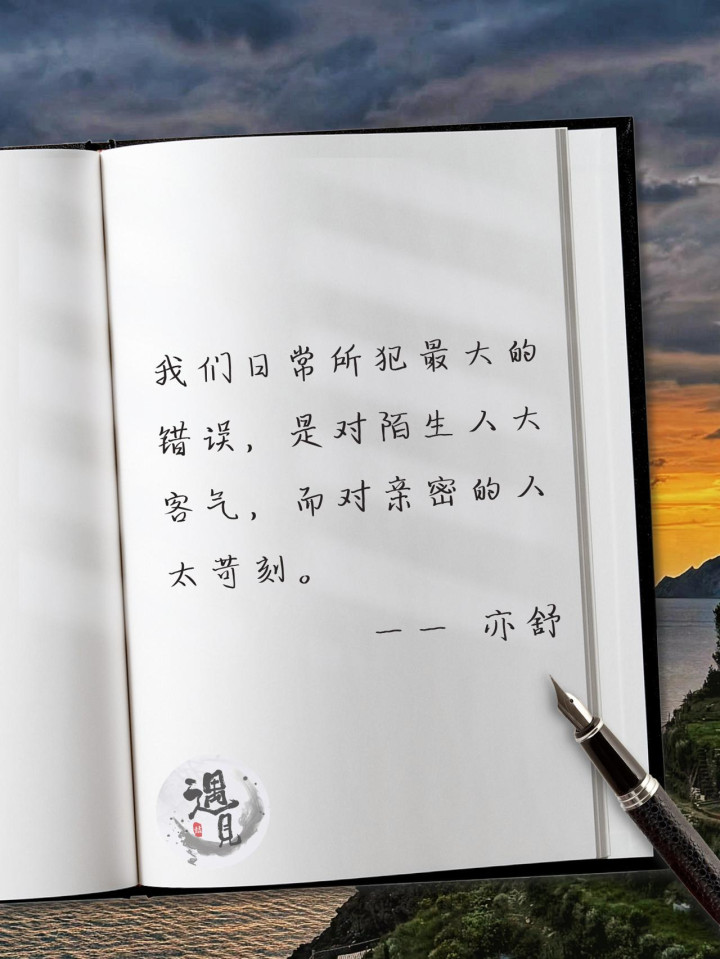 我们日常所犯最大的
错误，是对陌生人大
客气，而对亲密的人
太苛刻。
—— 亦舒
遇
見